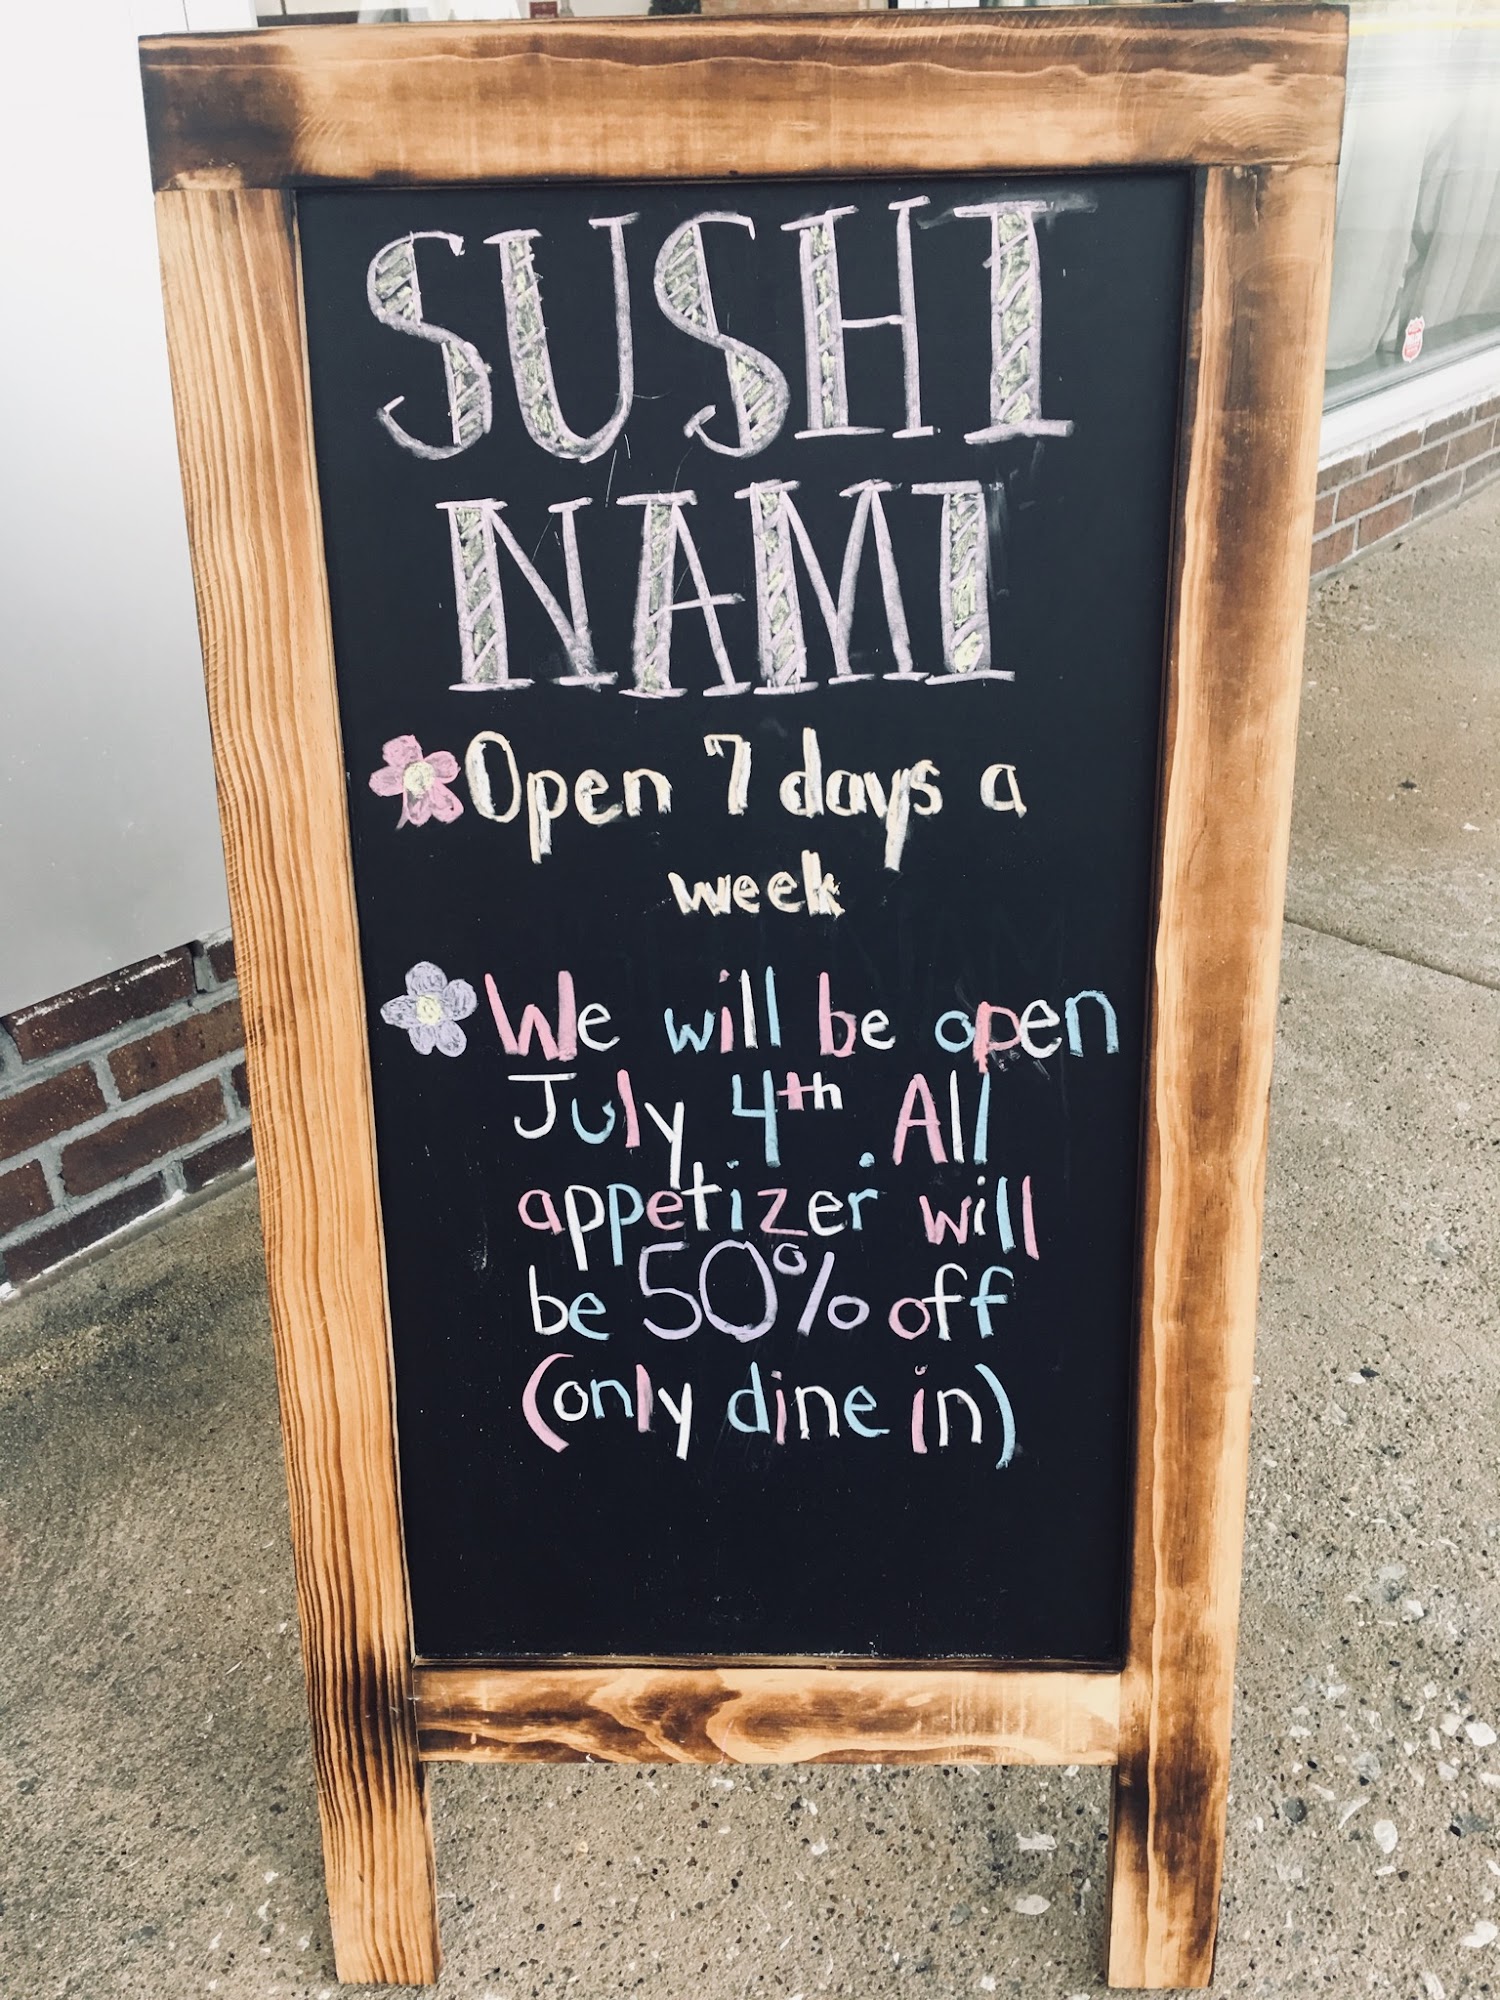 SUSHI
NAMI
Open 7 days a
week
We will be open
July 4th. All
appetizer will
be 50% off
(only dine in)